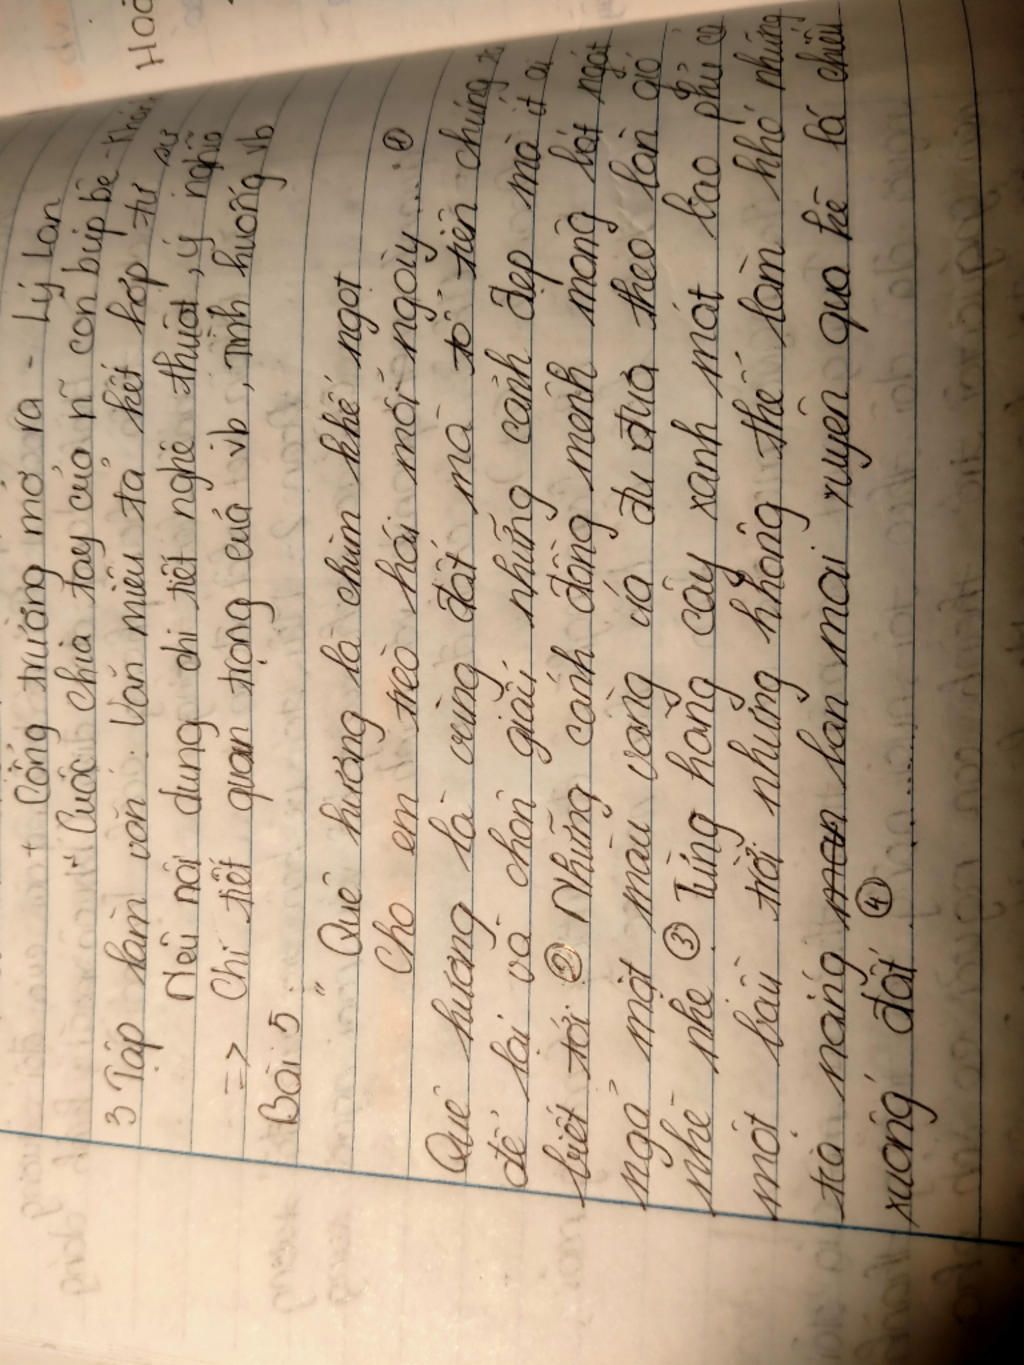 Cổng trường mở ra - Lý Lan
Cuộc chia tay của n~ con búp bê - Khánh
3 Tập làm văn: Văn miêu tả kết hợp tự sự
Nêu nội dung chi tiết nghệ thuật, ý nghĩa
=> Chi tiết quan trọng của vb, tình huống vb
Bài 5:
" Quê hương là chùm khế ngọt
Cho em trèo hái mỗi ngày.... ①
Quê hương là vùng đất mà tổ tiên chúng ta
để lại và chôn giấu những cảnh đẹp mà ít ai
biết tới. ② Những cánh đồng mênh mông bát ngát
ngả một màu vàng và đu đưa theo làn gió
nhè nhẹ ③ Từng hàng cây xanh mát bao phủ cả
một bầu trời nhưng không thể làm khó những
tia nắng ban mai xuyên qua kẽ lá chiếu
xuống đất. ④ ...........
Hoà